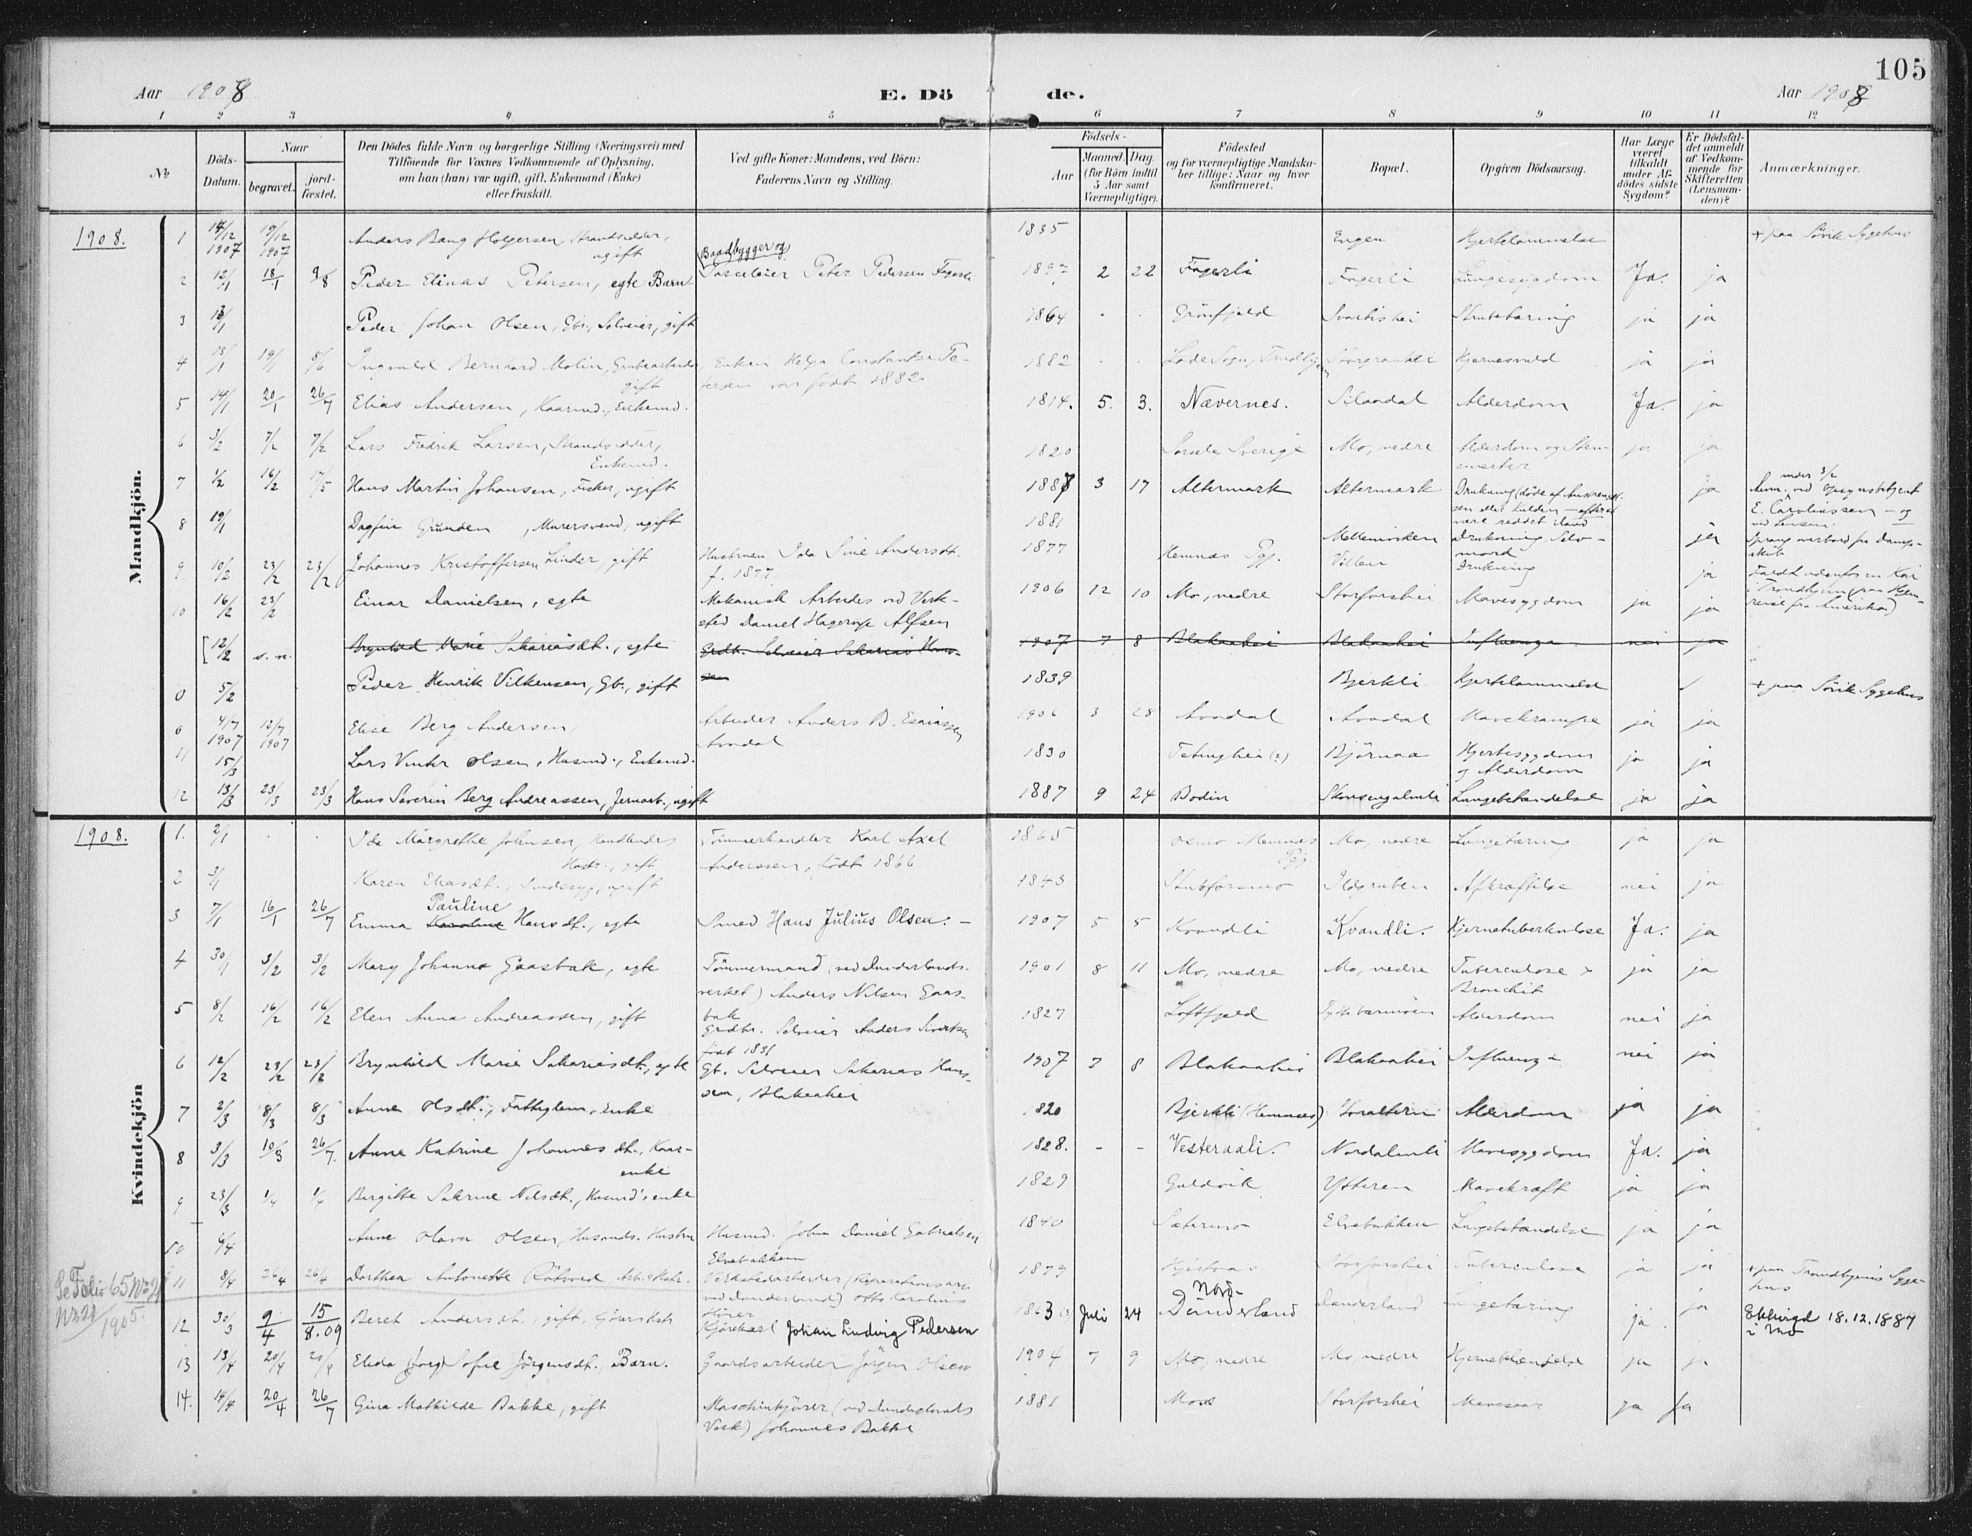 105
Aar 1908 E. Dö de. Aar 1908
1 2 3 4 5 6 7 8 9 10 11 12
No
Döds-Datum.
Naar
begravet.
jord-fæstet.
Den Dödes fulde Navn og borgerlige Stilling (Næringsvei) med
Tilföiende for Voxnes Vedkommende af Oplysning,
om han (hun) var ugift, gift, Enkemand (Enke)
eller fraskilt.
Ved gifte Koner: Mandens, ved Börn:
Faderens Navn og Stilling.
Födsels-
Aar
Maaned. Dag.
(for Börn indtil
5 Aar samt
Værnepligtige).
Födested
og for værnepligtige Mandska-
ber tillige: Naar og hvor
konfirmeret.
Bopæl.
Opgiven Dödsaarsag.
Har Læge
været
tilkaldt
under Af-
dödes sidste
Sygdom?
Er Dödsfal-
det anmeldt
af Vedkom-
mende for
Skifteretten
(Lensman-
den)?
Anmærkninger.
Mandkjön.
1908. 1 14/12 1907 19/12 1907 Anders Bang Holgersen, Strandsidder, ugift 1835 Engen Hjertelammelse + paa Sörvik Sygehus
2 12/1 18/1 9/8 Peder Elinas Petersen, egte Barn Baadbygger og Parceleier Peter Pedersen Fagerli 1897 2 22 Fagerli Fagerli Lungesygdom Ja. ja
3 13/1 Peder Johan Olsen, Gbr., Selveier, gift 1864 Grönfjeld Svartishei Strubetæring ja ja
4 13/1 19/1 8/6 Ingvald Bernhard Molin, Grubearbeider, gift Enken Helga Constantse Petersen var født 1882 1882 Storgranhei ja ja
5 14/1 20/1 26/7 Elias Andersen, Kaarmd., Enkemd. 1814. 5. 3. Nævernes. Silaadal Alderdom Ja. ja
6 3/2 7/2 7/2 Lars Fredrik Larsen, Strandsidder, Enkemd. 1820 Sorsele Sverige Mo, nedre Alderdom og ja ja
7 1/2 16/2 17/5 Hans Martin Johansen, Fisker, ugift 1887 3 17 Altermark Altermark Drukning ja
8 19/1 Dagfin Grunden, Murersvend, ugift 1881 Drukning Selvmord ja Sprang overbord fra Dampskib
9. 10/2 23/2 23/2 Johannes Kristoffersen Linder, gift Hustruen Ida Sine Andersdt. f. 1877 1877 Hemnæs Pgj. Drukning ja
10 16/2 23/2 Einar Danielsen, egte Mekanisk Arbeider ved Verksted Daniel Hagerup Alfsen 1906 12 10 Mo, nedre Storforshei Mavesygdom ja ja
[ 12/2 s. n. Brynhild Marie Sakariasdt., egte Grdbr. Selveier Sakarias Hanssen 1907 7 8 Blakaahei Blakaahei Influenza nei ja
0 5/2 Peder Henrik Vilkensen, Gb., gift 1839 Bjerkli Hjertelammelse + paa Sörvik Sygehus
0 4/7 1907 12/7 1907 Elise Berg Andersen, Arbeider Anders B. Esaiassen Avadal 1906 3 28 Avadal Avadal Mavekrampe ja ja
11 15/3 Lars Vinter Olsen, Husmd., Enkemd. 1830 Björnaa Hjertesygdom og Alderdom ja ja
12 13/3 23/3 23/3 Hans Severin Berg Andreassen, Jernarb., ugift 1887 9 24 Bodin Skonsengalmli Lungebetændelse ja ja
Kvindekjön
1908. 1. 2/1 Ida Margrethe Johnsen, Handlendes Hustr., gift Tömmerhandler Karl Axel Anderssen, födt 1866 1865 Hemnæs Pgj Mo, nedre Lungetæring ja ja
2 3/1 Karen Eliasdt., Sindssyg, ugift 1843 Stubforsmo Ildgruben Afkræftelse nei ja
3 7/1 16/1 26/7 Emma Karoline Pauline Hansdt., egte Smed Hans Julius Olsen: – 1907 5 5 Kvandli Kvandli. Hjernetuberkulose Ja. ja
4 30/1 3/2 3/2 Mary Johanna Gaasbak, egte Tömmermand (ved Dunderlandsverket) Anders Nilsen Gaasbak 1901 8 11 Mo, nedre Mo, nedre Tuberculose & Bronchit ja ja
5 8/2 16/2 16/2 Elen Anna Andreassen, gift Grdbr. Selveier Anders Sivertsen födt 1831 1827 Loftfjeld Alderdom nei ja
6 12/2 23/2 23/2 Brynhild Marie Sakariasdt., egte Gb. Selveier Sakarias Hanssen, Blakaahei 1907 7 8 Blakaahei Blakaahei Influenza nei ja
7 2/3 8/3 8/3 Anne Olsdt., Fattiglem, Enke 1820 Bjerkli (Hemnes) Alderdom ja ja
8 3/3 10/3 26/7. Anne Katrine Johannesdt., Kaarenke 1828. – – Vesteraali. Nordalmli Mavesygdom Ja. ja
9 23/3 1/4 1/4 Birgitte Sakrine Nilsdt., Husmd's enke 1829 Guldvik Ytteren Mavekræft ja ja
10 4/4 Anne Olava Olsen, Husmds. Hustru Husmd. John Daniel Gabrielsen Elvebakken 1840 Sætermo Elvebakken Lungebetændelse ja ja
Se Folio 65 No 21
No 21/1905.
11 8/4 26/4 26/4 Dorthea Antonette Rötvold, Arb.s Hstr. Verkstedarbeider (Reparationsarb. ved Dunderland) Otto Karolius 1879 Storforshei Tuberculose ja ja + paa Trondhjems Sygehus
12 30/3 9/4 15/8.09 Beret Andersdt., gift, Kjörers Hstr. Kjörekarl Johan Ludvig Pedersen 1863 Juli 24 Nord-Dunderland Dunderland Lungetæring ja ja Ektevigd 18.12.1887 i Mo
13 13/4 20/4 20/4 Elida (Jorg) Sofie Jörgensdt. Barn. Gaardsarbeider Jörgen Olsen 1904 7 9 Mo, nedre Mo, nedre Hjernebetændelse ja ja
14. 14/4 20/4 26/7 Gina Mathilde Bakke, gift Maschinkjörer (ved Dunderlands Verk) Johannes Bakke 1881 Moss Storforshei Mavesaar ja Ja